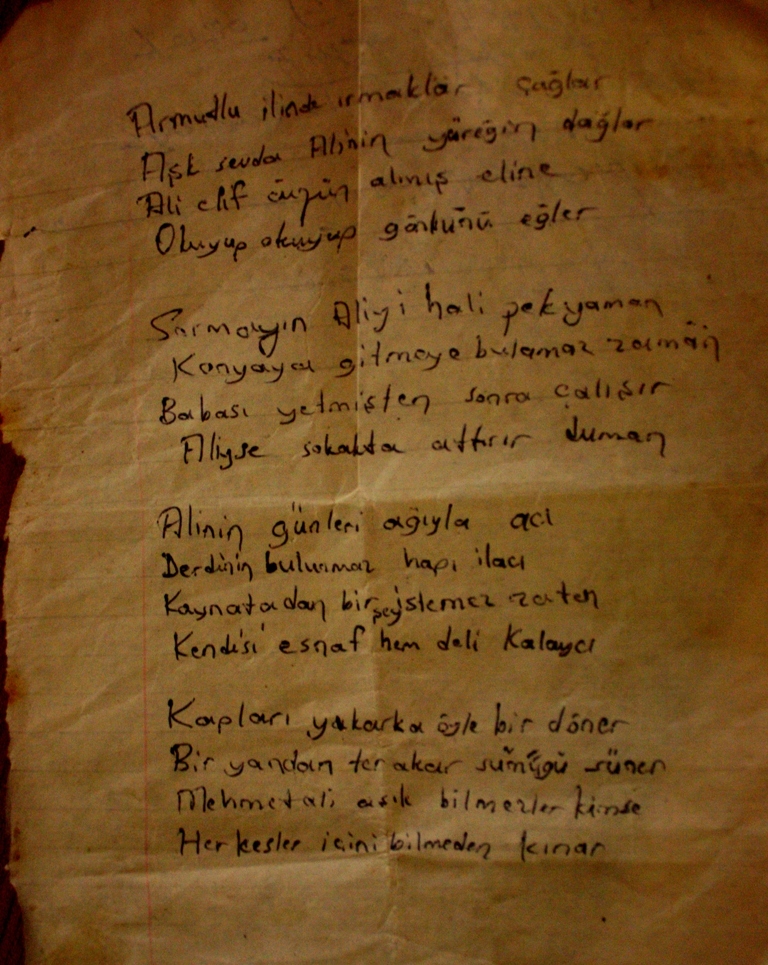 Armutlu ilinde ırmaklar çağlar
Aşk sevda Alinin yüreğin dağlar
Ali elif cüzün almış eline
Okuyup okuyup gönlünü eğler
Sormayın Aliyi hali pek yaman
Konyaya gitmeye bulamaz zaman
Babası yetmişten sonra çalışır
Aliyse sokakta attırır duman
Alinin günleri ağıyla acı
Derdinin bulunmaz hapı ilacı
Kaynatadan bir şey istemez zaten
Kendisi esnaf hem deli Kalaycı
Kapları yakarka öyle bir döner
Bir yandan ter akar sümüğü süner
Mehmetali aşık bilmezler kimse
Herkesler içini bilmeden kınar